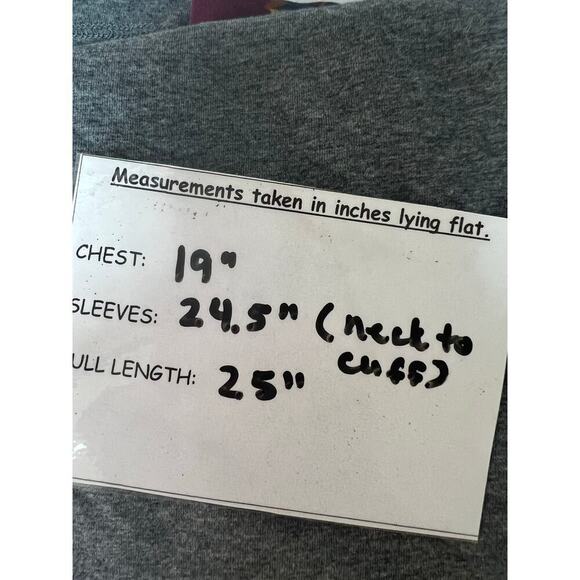 Measurements taken in inches lying flat.
CHEST: 19"
SLEEVES: 24.5" (neck to
cuff)
ULL LENGTH: 25"